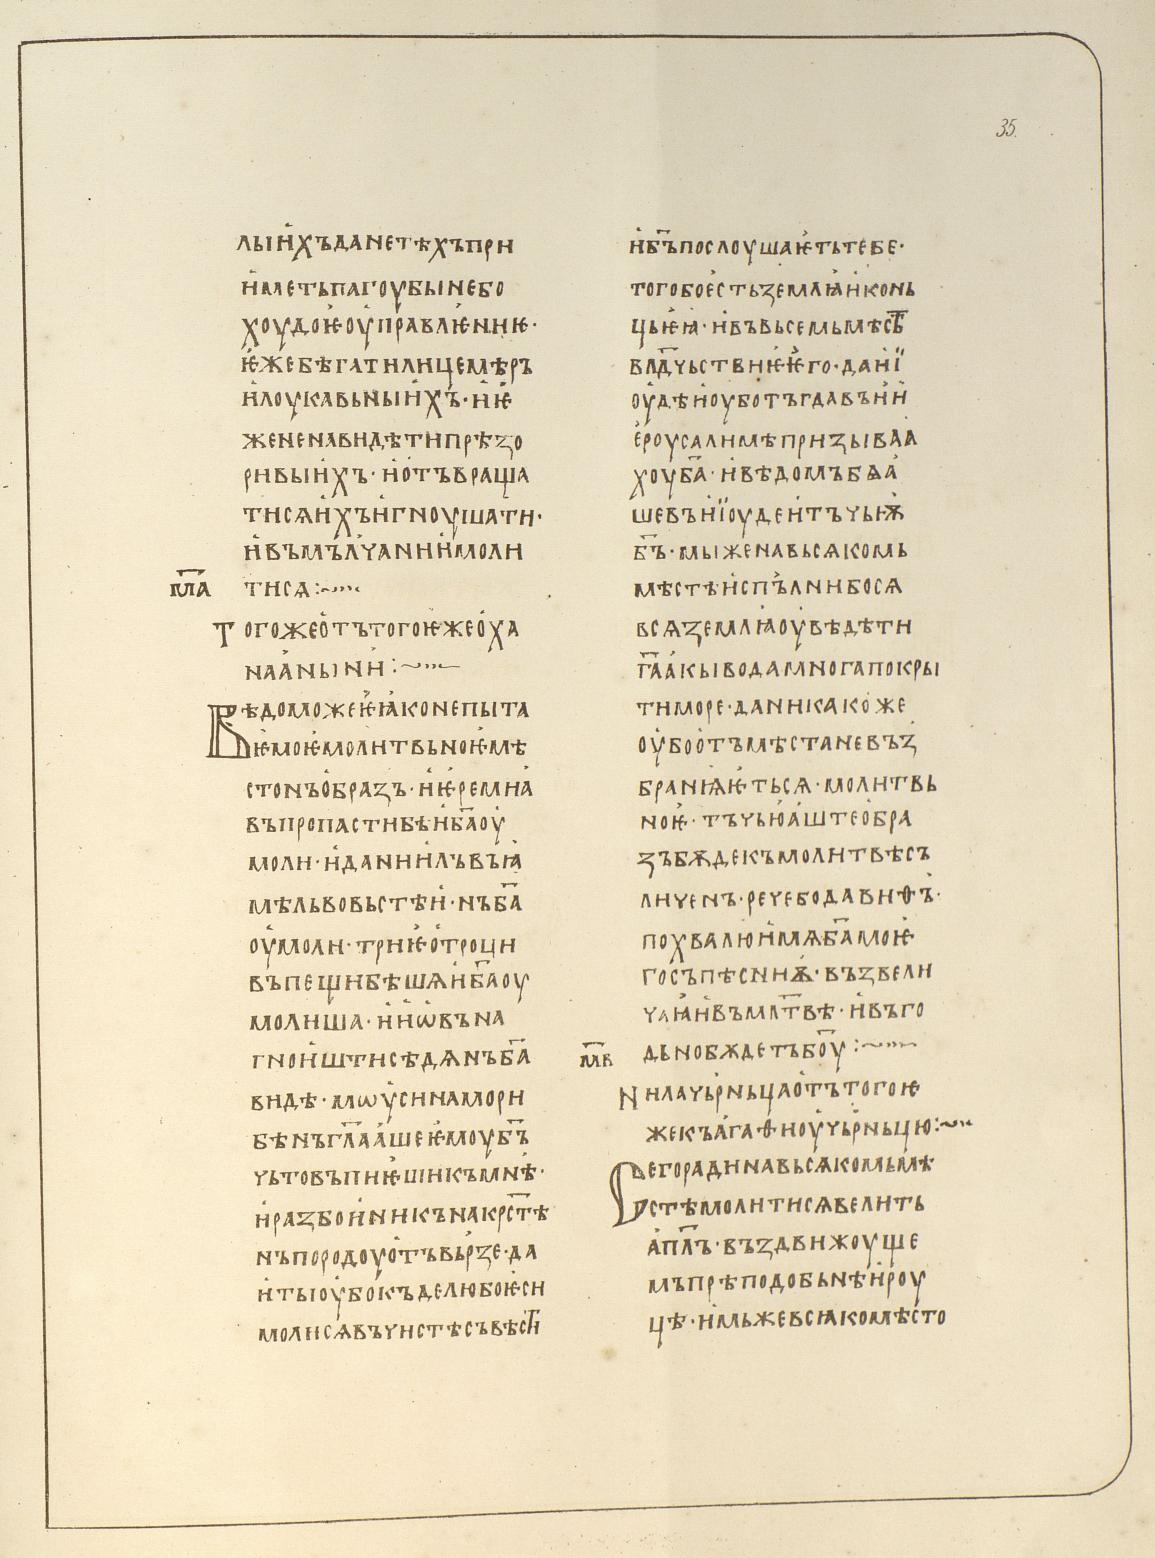 35.
лꙑихъданетѣхъпри
иметьпагоубꙑнебо
хоудоѥоуправлѥниѥ·
ѥжебѣгатилицемѣръ
илоукавьнꙑихъ·иѥ
жененавидѣтипрѣзо
ривꙑихъ·иотъвраща
тисѧихъигноушати·
ивъмълчаниимоли
м҃а тисѧ:~
Тогожеотътогоѥжеоха
наанꙑни:~
Вѣдоможеѥꙗконепꙑта
ѥмоѥмолитвьноѥмѣ
стонъобразъ·иѥремиꙗ
въпропастибѣиб҃аоу
моли·иданиилъвъꙗ
мѣльвовьстѣи·нъб҃а
оумоли·триѥотроци
въпещибѣшѧиб҃аоу
молиша·иѡвъна
гноиштисѣдѧнъб҃а
видѣ·мѡусинамори
бѣнъгл҃аашеѥмоуб҃ъ
чьтовъпиѥшикъмнѣ·
иразбоиникънакрс҃тѣ
нъпородоуотъвьрзе·да
итꙑоубокъделюбоѥси
молисѧвъчистѣсъвѣс҃ти
иб҃ъпослоушаѥтьтебе·
тогобоестьземлꙗиконь
циѥꙗ·ивъвьсемьмѣс҃тѣ
влд҃чьствиѥѥго·даиї
оудѣиоуботъгдавъии
ероусалимѣпризꙑваа
хоуб҃а·ивѣдомъбѧа
шевъиїоудеитъчьѭ
б҃ъ·мꙑженавьсѧкомь
мѣстѣиспълнибосѧ
всѧземлꙗоувѣдѣти
г҃аакꙑводамногапокрꙑ
тиморе·даникакоже
оубоотъмѣстаневъз
бранꙗѥтьсѧ·молитвь
ноѥ·тъчьюаштеобра
зъбѫдекъмолитвѣсъ
личенъ·речебодавиѳъ·
похвалюимѧб҃амоѥ
госъпѣсниѭ·възвели
чаꙗивъмлт҃вѣ·ивъго
м҃в дьнобѫдетьб҃оу:~
Нилачьрньцаотътогоѥ
жекъагаѳиоучьрньцю:~
Сегорадинавьсѧкомьмѣ
стѣмолитисѧвелить
апл҃ъ·въздвижоуще
мъпрѣподобьнѣироу
цѣ·имьжевсꙗкомѣсто